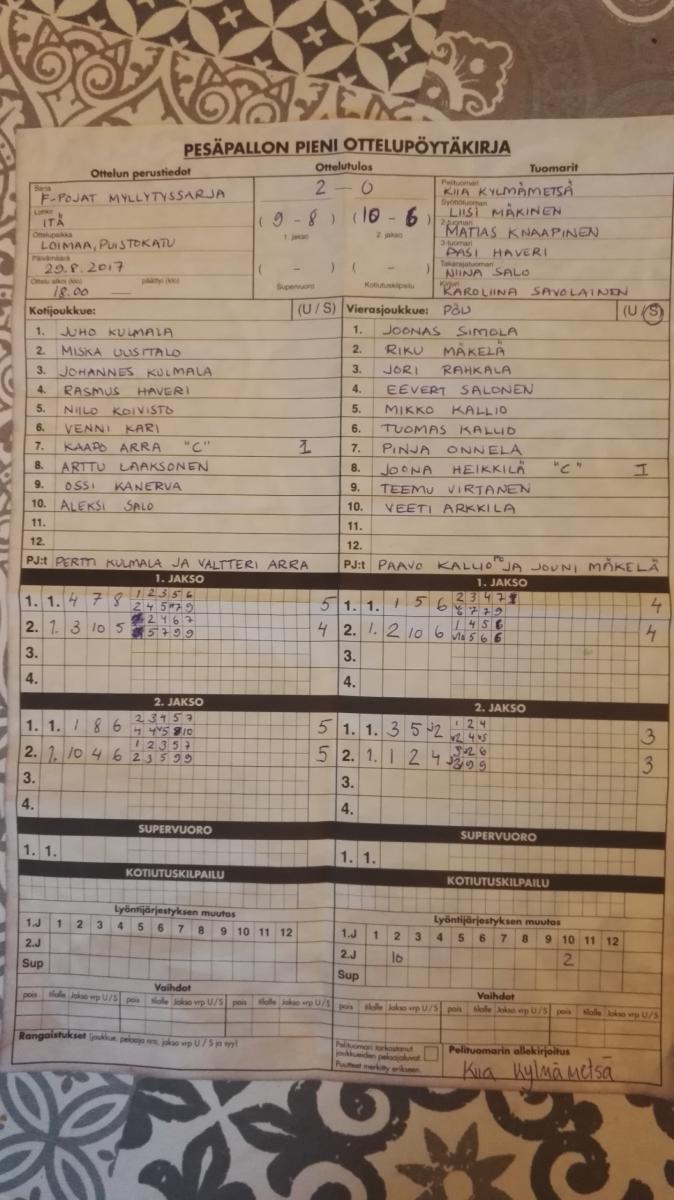 PESÄPALLON PIENI OTTELUPÖYTÄKIRJA
Ottelun perustiedot Ottelutulos Tuomarit
Sarja F-POJAT MYLLYTYSSARJA
Lohko ITÄ
Ottelupaikka LOIMAA, PUISTOKATU
Päivämäärä 29.8.2017
Ottelu alkoi (klo) 18.00 päättyi (klo)
2 - 0
(9 - 8) (10 - 6)
1. jakso 2. jakso
( - ) ( - )
Supervuoro Kotiutuskilpailu
Pelituomari KIIA KYLMÄMETSÄ
Syöttötuomari LIISI MÄKINEN
2-tuomari MATIAS KNAAPINEN
3-tuomari PASI HAVERI
Takarajatuomari NIINA SALO
Kirjuri KAROLIINA SAVOLAINEN
Kotijoukkue: (U / S)
1. JUHO KULMALA
2. MISKA UUSITALO
3. JOHANNES KULMALA
4. RASMUS HAVERI
5. NIILO KOIVISTO
6. VENNI KARI
7. KAAPO ARRA "C" I
8. ARTTU LAAKSONEN
9. OSSI KANERVA
10. ALEKSI SALO
11.
12.
PJ:t PERTTI KULMALA JA VALTTERI ARRA
Vierasjoukkue: PÖU (U / S)
1. JOONAS SIMOLA
2. RIKU MÄKELÄ
3. JORI RAHKALA
4. EEVERT SALONEN
5. MIKKO KALLIO
6. TUOMAS KALLIO
7. PINJA ONNELA
8. JOONA HEIKKILÄ "C" I
9. TEEMU VIRTANEN
10. VEETI ARKKILA
11.
12.
PJ:t PAAVO KALLIO JA JOUNI MÄKELÄ
1. JAKSO
1. 1. 4 7 8 1 2 3 5 6 5
2 4 5 7 9
2. 1. 3 10 5 2 4 6 7 4
5 7 9 9
3.
4.
1. JAKSO
1. 1. 1 5 6 2 3 4 7 4
6 7 7 9
2. 1. 2 10 6 1 4 5 6 4
5 6 6
3.
4.
2. JAKSO
1. 1. 1 8 6 2 3 4 5 7 5
2. 1. 10 4 6 1 2 3 5 7 5
2 3 5 9 9
3.
4.
2. JAKSO
1. 1. 3 5 1 2 4 3
2. 1. 1 2 4 3
3.
4.
SUPERVUORO
1. 1.
SUPERVUORO
1. 1.
KOTIUTUSKILPAILU
KOTIUTUSKILPAILU
Lyöntijärjestyksen muutos
1.J 1 2 3 4 5 6 7 8 9 10 11 12
2.J
Sup
Lyöntijärjestyksen muutos
1.J 1 2 3 4 5 6 7 8 9 10 11 12
2.J 10 2
Sup
Vaihdot
pois tilalle Jakso vrp U / S pois tilalle Jakso vrp U / S pois tilalle Jakso vrp U / S
Vaihdot
pois tilalle Jakso vrp U / S pois tilalle Jakso vrp U / S pois tilalle Jakso vrp U / S
Rangaistukset (joukkue, pelaaja nro, jakso vrp U / S ja syy)
Pelituomari tarkastanut
joukkueiden pelaajaluvat.
Puutteet merkitty erikseen.
Pelituomarin allekirjoitus
Kiia Kylmämetsä